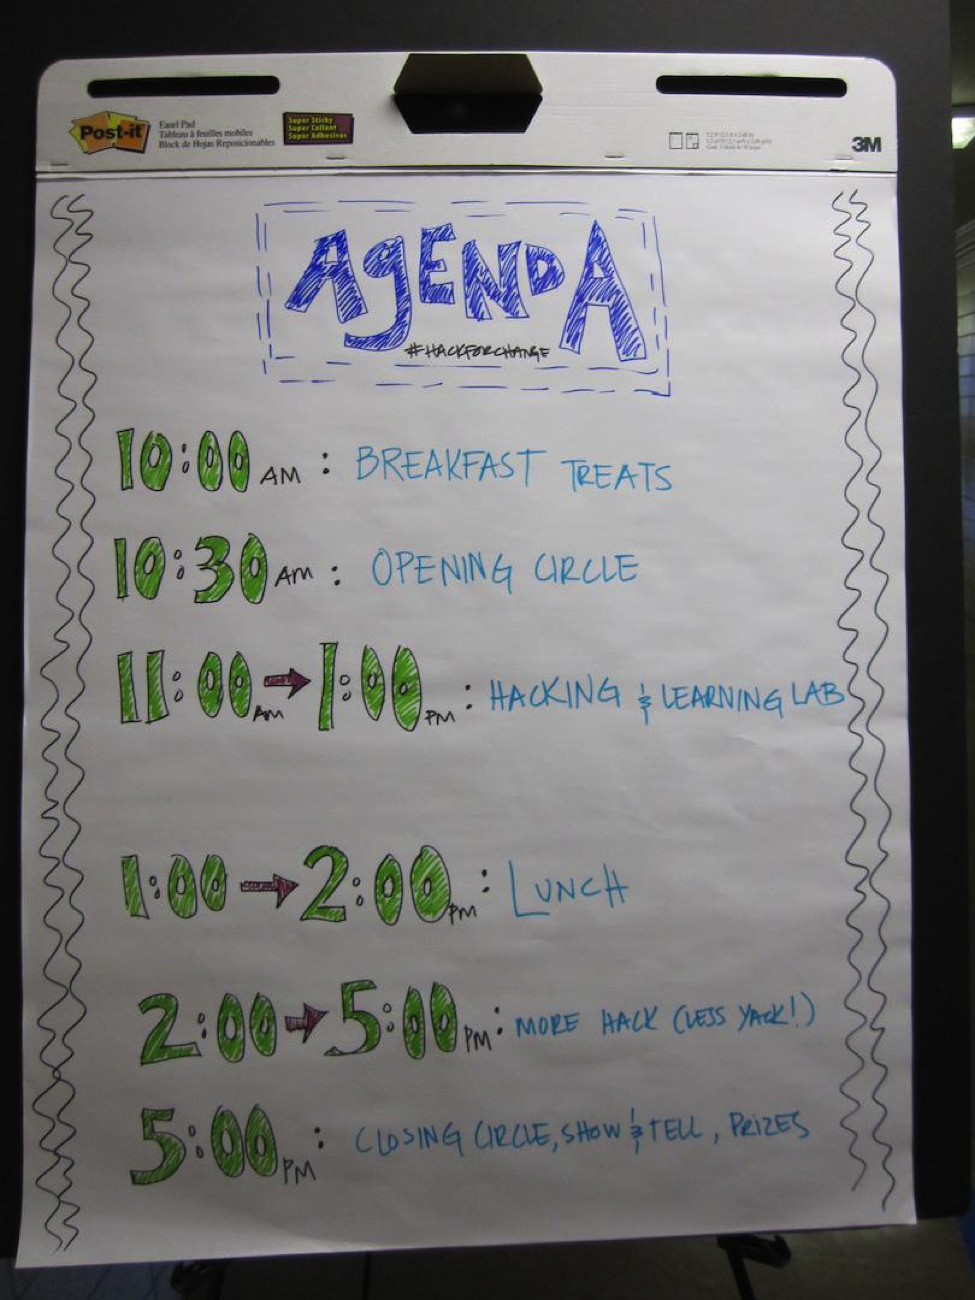 Post-it
Easel Pad
Tableau à feuilles mobiles
Block de Hojas Reposicionables
Super Sticky
Super Collant
Super Adhesivas
3M
AgENDA
#HACKFORCHANGE
10:00 AM : BREAKFAST TREATS
10:30 AM : OPENING CIRCLE
11:00 AM → 1:00 PM : HACKING & LEARNING LAB
1:00 → 2:00 PM : LUNCH
2:00 → 5:00 PM : MORE HACK (LESS YACK!)
5:00 PM : CLOSING CIRCLE, SHOW & TELL, PRIZES